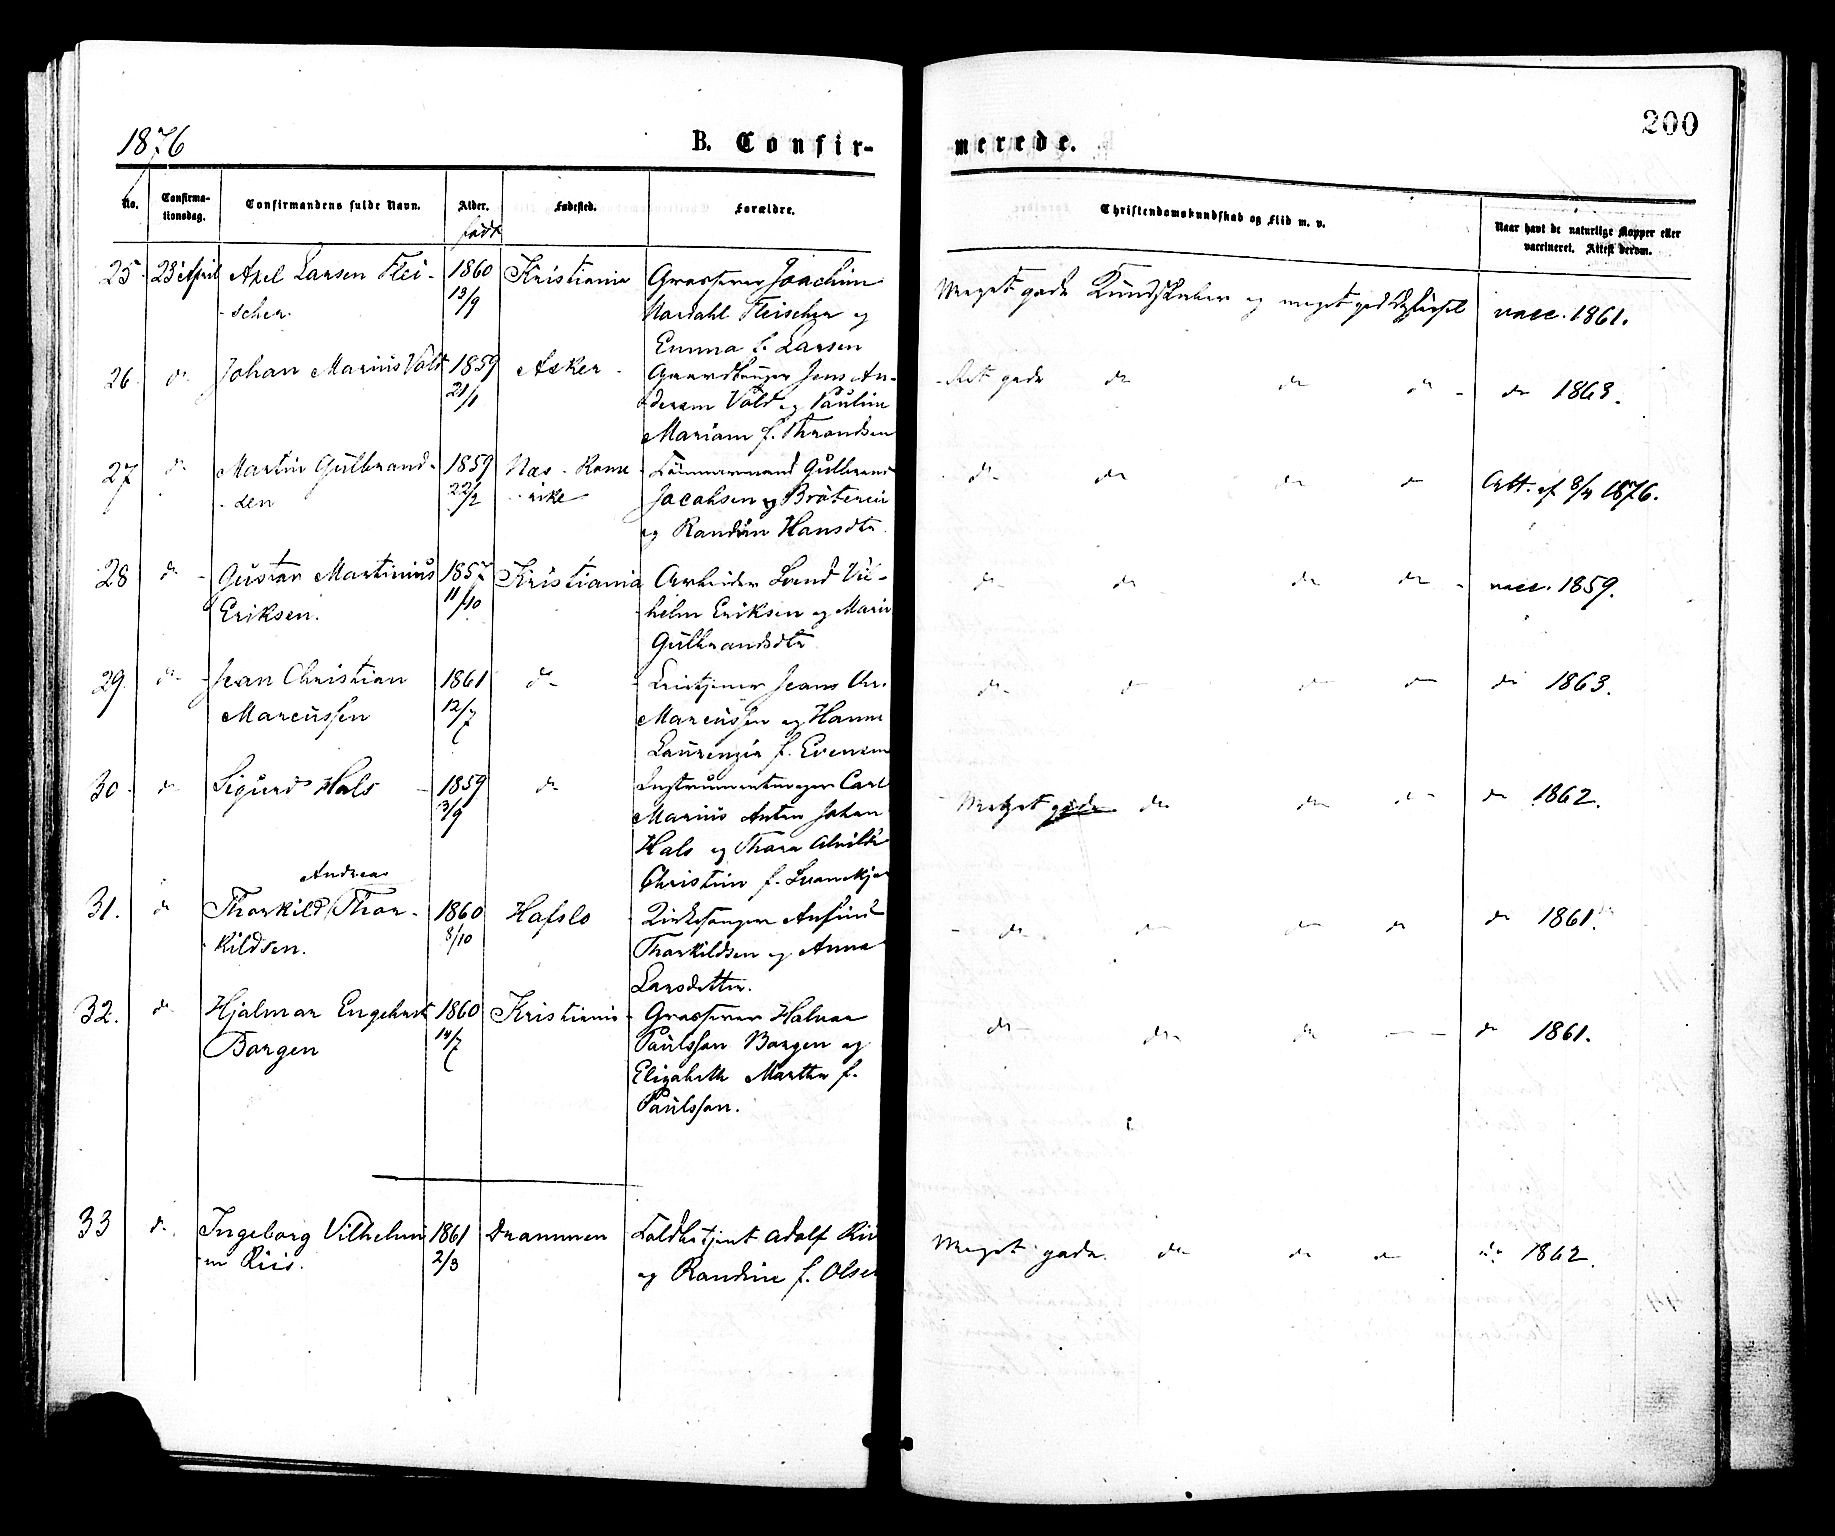 1876
B. Confir-
merede.
200
No.
Confirma-
tionsdag.
Confirmandens fulde Navn.
Alder.
født
Fødested.
Forældre.
Christendomskundskab og Flid m. v.
Naar havt de naturlige Kopper eller
vaccineret. Attest derom.
25 23 April Axel Larsen Flei- 1860 Kristiania Grosserer Joachim
-scher. 13/9 Nordahl Fleischer og
Emma f. Larsen
Meget gode Kundskaber og meget god vacc. 1861.
26 do Johan Marius Vold 1859 Asker Gaardbruger Jens An-
21/1 dersen Vold og Pauline
Mariane f. Throndsen
Ret gode do do do do 1863.
27 do Martin Gulbrand- 1859 Næs - Rome Tømmermand Gulbrand
-sen 22/2 -rike Jacobsen Bråtereie
og Randine Hansdtr.
do do do do Att. af 8/4 1876.
28 do Gustav Martinius 1857 Kristiania Arbeider Vil-
Eriksen. 11/10 helm Eriksen og Marie
Gulbrandsdtr
do do do do vacc. 1859.
29 do Jean Christian 1861 do Jeans Chr.
Marcussen 12/7 Marcussen og Hanne
Laurenzia f. Evensen
do do do do do 1863.
30 do Sigurd Hals 1859 do Instrumentmager Carl
3/9 Marius Anton Johan
Hals og Thora Alvilde
Christine f.
Meget gode do do do do 1862.
Andreas
31. do Thorkild Thor- 1860 Hafslo Kirkesanger Anfind
kildsen. 8/10 Thorkildsen og Anna
Larsdatter.
do do do do do 1861.
32. do Hjalmar Engebret 1860 Kristiania Grosserer Halvor
Borgen 14/7 Paulsson Borgen og
Elizabeth Martha f.
Paulsson.
do do do do 1861.
33 do Ingeborg Vilhelmi 1861 Drammen Toldbetjent Adolf Riis
-ne Riis. 2/3 og Randine f. Olsen
Meget gode do do do do 1862.